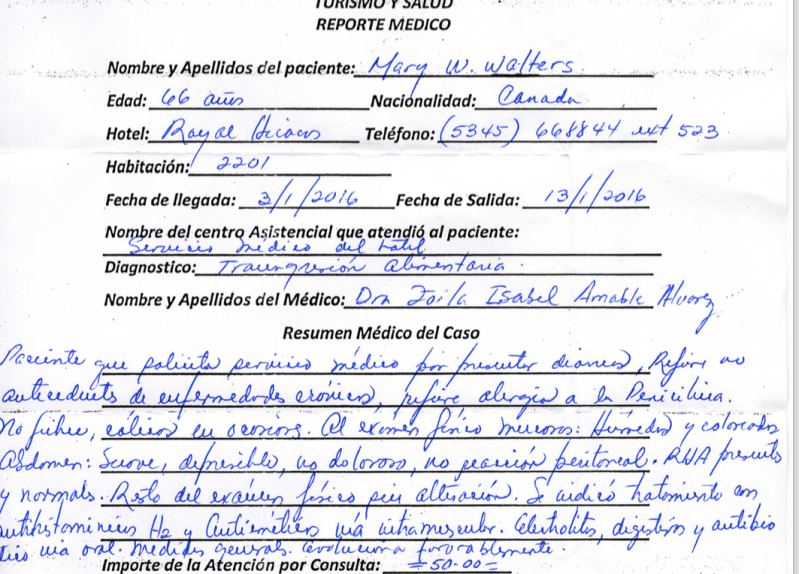 TURISMO Y SALUD
REPORTE MEDICO
Nombre y Apellidos del paciente: Mary W. Walters
Edad: 66 años Nacionalidad: Canada
Hotel: Royal Hicacos Teléfono: (5345) 668844 ext 523
Habitación: 2201
Fecha de llegada: 3/1/2016 Fecha de Salida: 13/1/2016
Nombre del centro Asistencial que atendió al paciente:
Servicio médico del hotel
Diagnostico: Transgresión alimentaria.
Nombre y Apellidos del Médico: Dra Zoila Isabel Amable Alvarez
Resumen Médico del Caso
Paciente que solicita servicio médico por presentar diarreas, Refiere no
antecedentes de enfermedades crónicas, refiere alergia a la Penicilina.
No fiebre, cólicos en ocasiones. Al examen físico mucosas: Húmedas y coloreadas
Abdomen: Suave, depresible, no doloroso, no reacción peritoneal. RHA presentes
y normales. Resto del examen físico sin alteración. Se indicó tratamiento con
antihistamínicos H2 y Antieméticos vía intramuscular. Electrolitos, digestivos y antibió
tico vía oral. Medidas generales. evoluciona favorablemente.
Importe de la Atención por Consulta: =50.00=